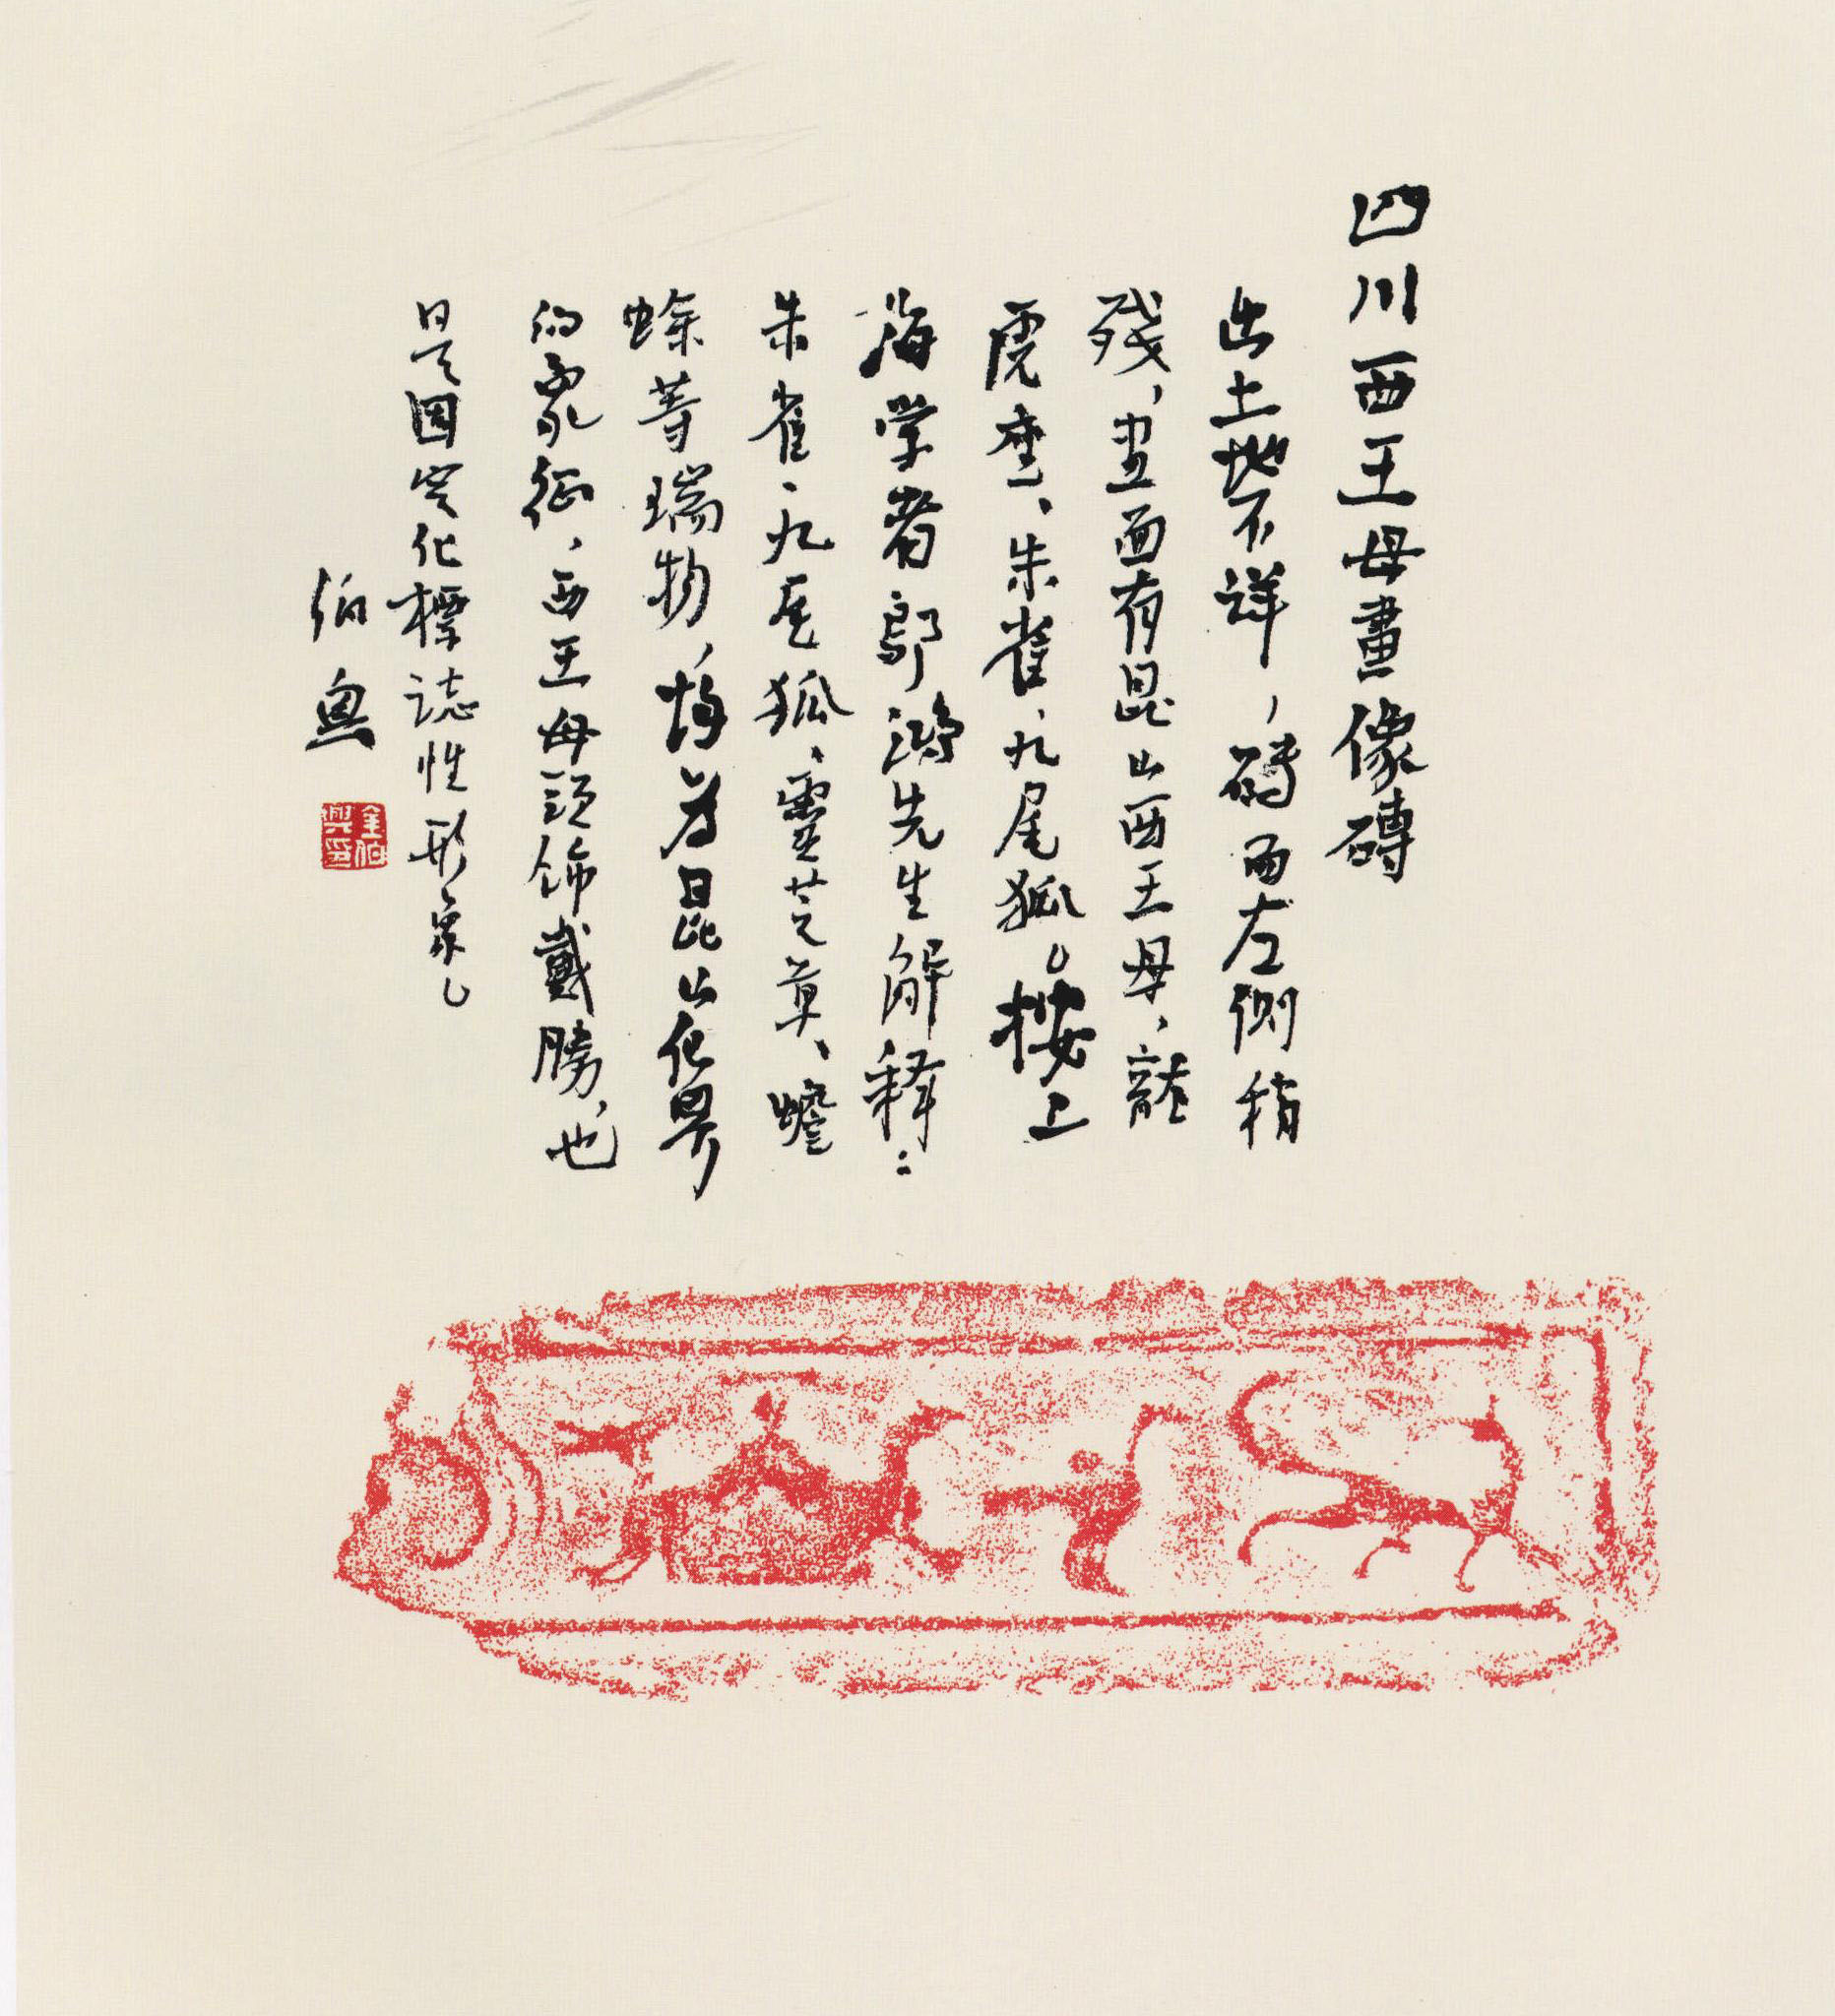 四川西王母畫像磚
出土地不详，磚面左側稍
殘，畫面有昆山西王母，龍
虎座、朱雀、九尾狐。按上
海学者鄔鴻先生解释：
朱雀、九尾狐、靈芝草、蟾
蜍等瑞物，均為昆山仙界
的象征，西王母頭飾戴勝，也
是固定化標誌性形象。
伯興